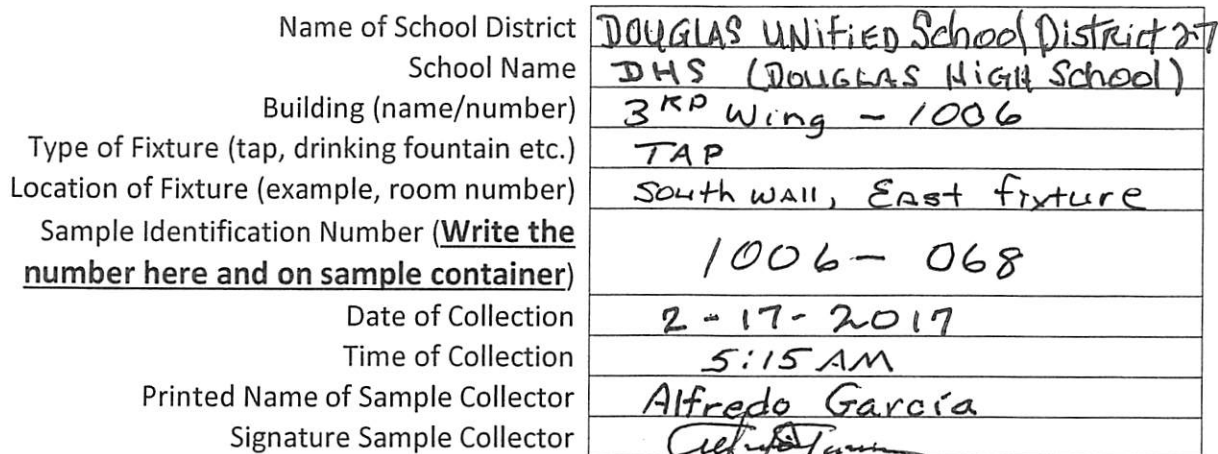 Name of School District DOUGLAS UNIFIED School District 27
School Name DHS (DOUGLAS HIGH School)
Building (name/number) 3RD Wing - 1006
Type of Fixture (tap, drinking fountain etc.) TAP
Location of Fixture (example, room number) South WAll, EAst fixture
Sample Identification Number (Write the
number here and on sample container) 1006- 068
Date of Collection 2-17-2017
Time of Collection 5:15 AM
Printed Name of Sample Collector Alfredo García
Signature Sample Collector